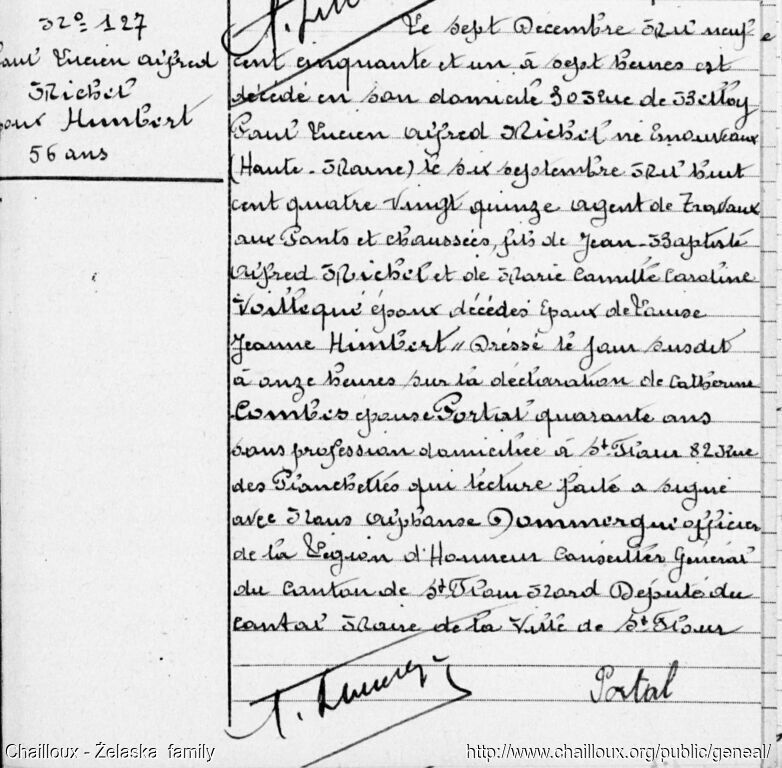 N°- 127
Paul Lucien Alfred
Michel
époux Himbert
56 ans
Le sept Décembre Mil neuf
cent cinquante et un à sept heures est
décédé en son domicile 30 Rue de Belloy
Paul Lucien Alfred Michel né
(Haute-Marne) le six septembre Mil huit
cent quatre vingt quinze agent de Travaux
aux Ponts et chaussées, fils de Jean-Baptiste
Alfred Michel et de Marie Camille Caroline
Voillequé époux décédés Epoux de Louise
Jeanne Himbert // Dressé le jour susdit
à onze heures sur la déclaration de Catherine
Combes épouse Portal quarante ans
sans profession domiciliée à St Flour 82 Rue
des Planchettes qui lecture faite a signé
avec Nous Alphonse Dommergue officier
de la Légion d'Honneur Conseiller Général
du Canton de St Flour Nord Député du
Cantal Maire de la Ville de St Flour
Portal
Chailloux - Żelaska family
http://www.chailloux.org/public/geneal/